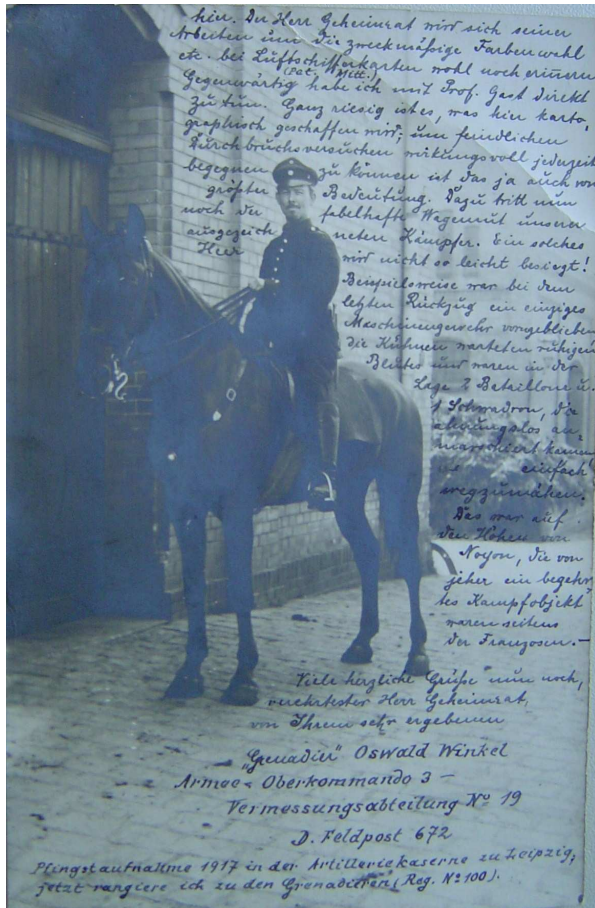 hier. Der Herr Geheimrat wird sich seiner
Arbeiten um die zweckmäßige Farbenwahl
etc. bei Luftschifferkarten wohl noch erinnern
(Pet. Mitt.)
Gegenwärtig habe ich mit Prof. Gast direkt
zu tun. Ganz riesig ist es, was hier karto-
graphisch geschaffen wird; um feindlichen
Durchbruchsversuchen wirkungsvoll jederzeit
begegnen zu können ist das ja auch von
größter Bedeutung. Dazu tritt nun
noch der fabelhafte Wagemut unserer
ausgezeichneten Kämpfer. Ein solches
Heer wird nicht so leicht besiegt!
Beispielsweise war bei dem
letzten Rückzug ein einziges
Maschinengewehr vorngeblieben
die Kühnen warteten ruhigen
Blutes und waren in der
Lage 2 Bataillone u.
1 Schwadron, die
ahnungslos an-
marschiert kamen
einfach
wegzumähen.
Das war auf
den Höhen von
Noyon, die von
jeher ein begehr-
tes Kampfobjekt
waren seitens
der Franzosen.-
Viele herzliche Grüße nun noch,
verehrtester Herr Geheimrat,
von Ihrem sehr ergebenen
„Grenadier" Oswald Winkel
Armee-Oberkommando 3 -
Vermessungsabteilung No 19
D. Feldpost 672
Pfingstaufnahme 1917 in der Artilleriekaserne zu Leipzig;
jetzt rangiere ich zu den Grenadieren (Reg. No 100).